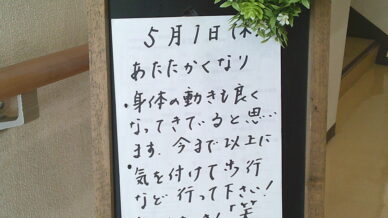 5月1日(木)
あたたかくなり
・身体の動きも良く
なってきていると思い
ます。今まで以上に
・気を付けて歩行
など行って下さい!